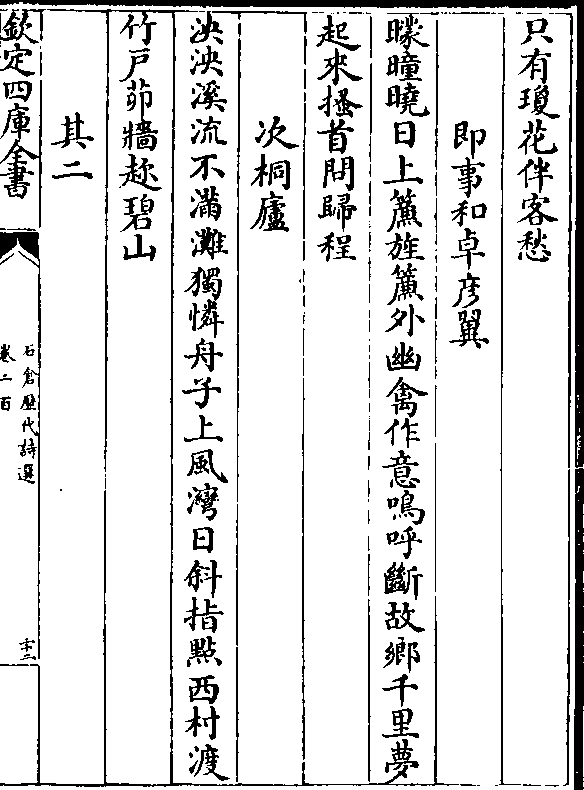 只有瓊花伴客愁
即事和卓彥翼
曚曈曉日上簾旌簾外幽禽作意鳴呼斷故鄉千里夢
起來搔首問歸程
次桐廬
泱泱溪流不滿灘獨憐舟子上風灣日斜指點西村渡
竹戸茆牆趂碧山
其二
欽定四庫全書
石倉歷代詩選
卷二百